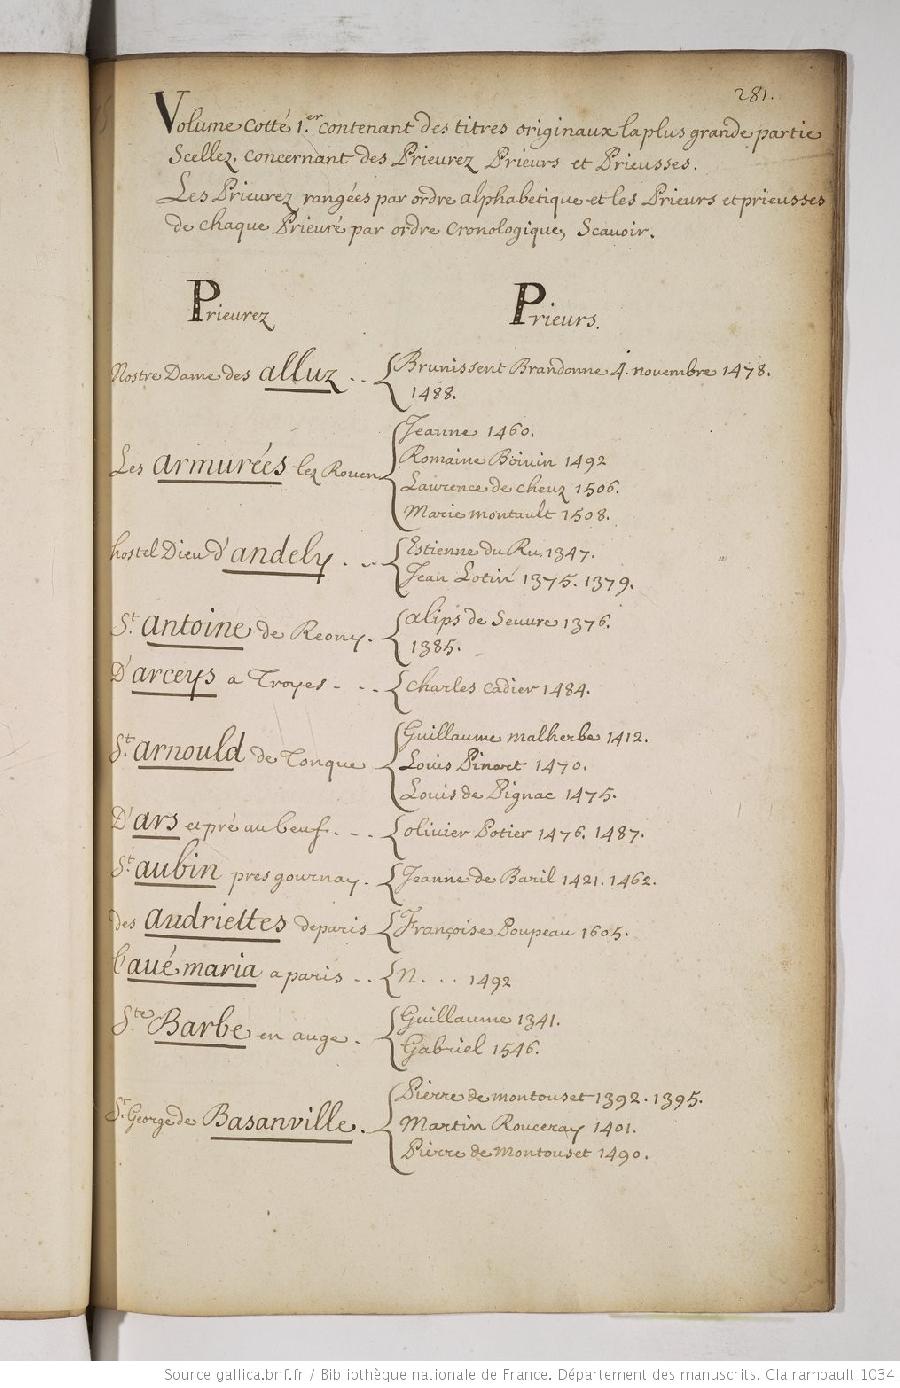 281.
Volume cotté 1.er contenant des titres originaux la plus grande partie
Scellez, concernant des Prieurez Prieurs et Prieusses.
Les Prieurez rangées par ordre alphabetique et les Prieurs et prieusses
de chaque Prieuré par ordre Cronologique, Scavoir.
Prieurez
Prieurs.
Nostre Dame des alluz . . { Brunissent Brandonne 4. novembre 1478.
1488.
Les armurées lez Rouen { Jeanne 1460.
Romaine Boivin 1492
Laurence de cheuz 1506.
Marie montault 1508.
hostel Dieu d'andely . . { Estienne du Ru, 1347.
Jean Lotin 1375. 1379.
St. antoine de Reony. { alips de Seuure 1376.
1385.
D'arceys a Troyes - . . { charles cadier 1484.
St. arnould de Tonque { Guillaume malherbe 1412.
Louis Pinart 1470.
Louis de Pignac 1475.
D'ars et pré au beuf. - . { olivier Potier 1476. 1487.
St. aubin pres gournay. { Jeanne de Baril 1421. 1462.
des audriettes de paris { Françoise Poupeau 1605.
l'aué maria a paris . . { N. . . . 1492
Ste Barbe en auge . { Guillaume 1341.
Gabriel 1546.
St. George de Basanville . { Pierre de montouset 1392. 1395.
Martin Rouceray 1401.
Pierre de Montouset 1490.
Source gallica.bnf.fr / Bibliothèque nationale de France. Département des manuscrits. Clairambault 1034